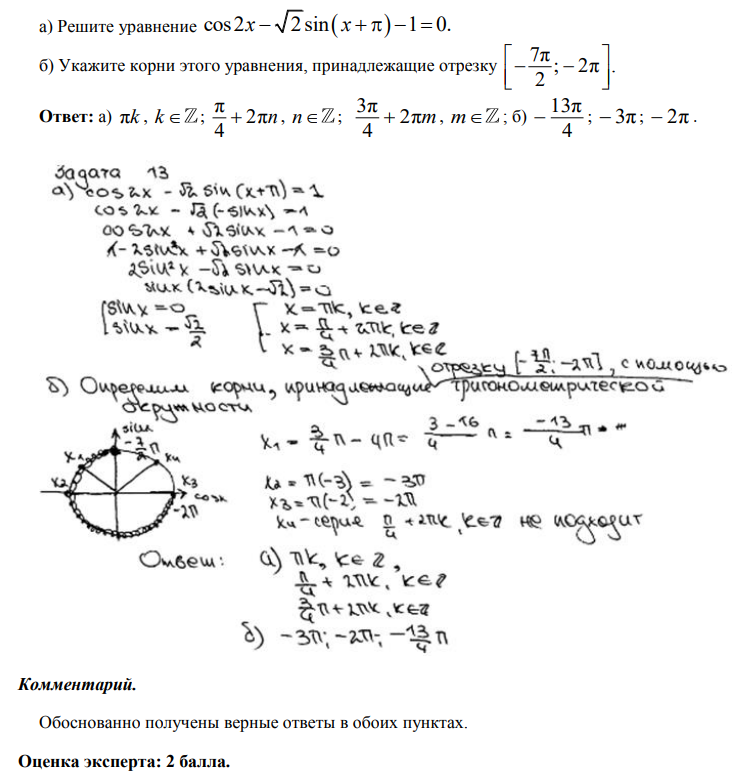 а) Решите уравнение cos2x − √2 sin(x + π) − 1 = 0.
б) Укажите корни этого уравнения, принадлежащие отрезку [−7π/2; −2π].
Ответ: а) πk, k ∈ ℤ; π/4 + 2πn, n ∈ ℤ; 3π/4 + 2πm, m ∈ ℤ; б) −13π/4; −3π; −2π.
Задача 13
а) cos2x − √2 sin(x+π) = 1
cos2x − √2(−sinx) = 1
cos2x + √2 sinx − 1 = 0
1 − 2sin²x + √2 sinx − 1 = 0
2sin²x − √2 sinx = 0
sinx(2sinx − √2) = 0
[sinx = 0 [x = πk, k∈Z
sinx = √2/2 x = π/4 + 2πk, k∈Z
x = 3/4 π + 2πk, k∈Z
отрезку [−7π/2; −2π], с помощью
б) Определим корни, принадлежащие тригонометрической
окружности
sinx
−7/2 π
x1 x4
x2 x3
cosx
−2π
x1 = 3/4 π − 4π = (3−16)/4 π = −13/4 π
x2 = π(−3) = −3π
x3 = π(−2) = −2π
x4 − серия π/4 + 2πk, k∈Z не подходит
Ответ: а) πk, k∈Z,
π/4 + 2πk, k∈Z
3/4 π + 2πk, k∈Z
б) −3π; −2π; −13/4 π
Комментарий.
Обоснованно получены верные ответы в обоих пунктах.
Оценка эксперта: 2 балла.